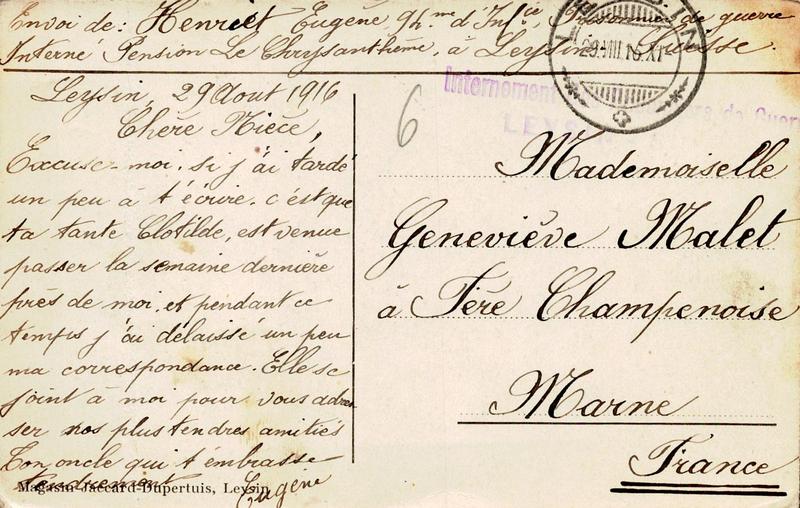 Envoi de: Henriet Eugène, 94me d'Infie Prisonnier de guerre
Interné Pension Le Chrysanthème, à Leysin. Suisse.
LEYSIN
29.VIII.16.XI
Internement Prisonniers de Guerre
LEYSIN
6
Leysin, 29 Aout 1916
Chère Nièce,
Excuse-moi, si j'ai tardé
un peu à t'écrire. c'est que
ta tante Clotilde, est venue
passer la semaine dernière
près de moi, et pendant ce
temps j'ai délaissé un peu
ma correspondance. Elle se
joint à moi pour vous adres-
ser nos plus tendres amitiés
Ton oncle qui t'embrasse
tendrement Eugène
Magasin Jaccard-Dupertuis, Leysin
Mademoiselle
Geneviève Malet
à Fère Champenoise
Marne
France